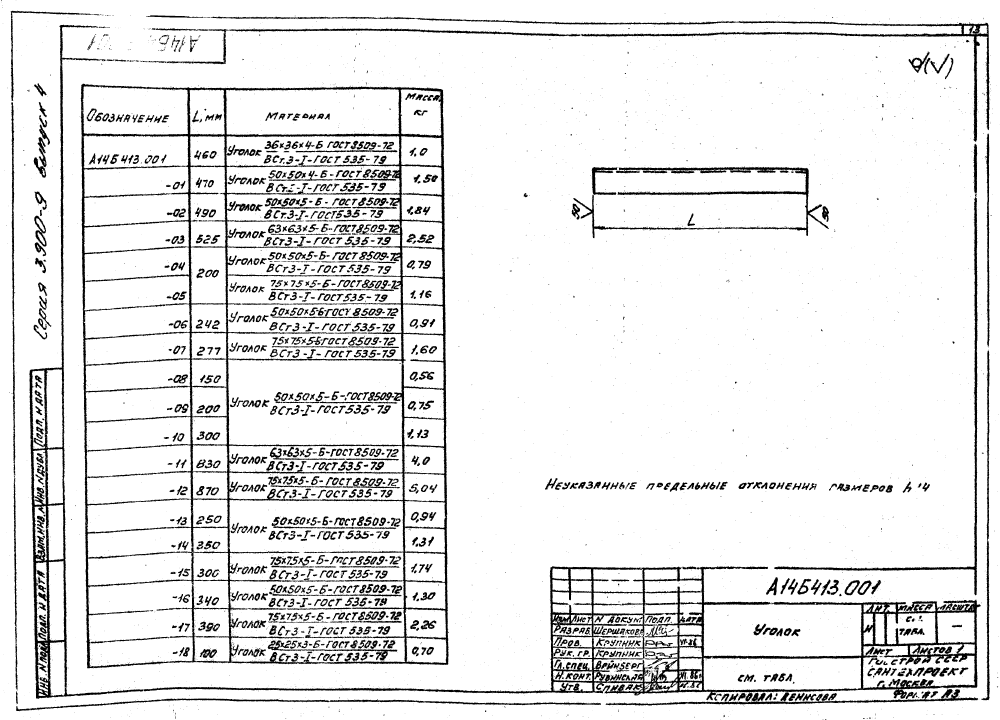 13
А14Б413.001
Серия 3.900-9 выпуск 4
Обозначение L, мм Материал Масса, кг
А14Б413.001 460 Уголок 36х36х4-Б ГОСТ 8509-72 / ВСт.3-I-ГОСТ 535-79 1,0
-01 470 Уголок 50х50х4-Б-ГОСТ 8509-72 / ВСт.3-I-ГОСТ 535-79 1,50
-02 490 Уголок 50х50х5-Б-ГОСТ 8509-72 / ВСт3-I-ГОСТ 535-79 1,84
-03 525 Уголок 63х63х5-Б-ГОСТ 8509-72 / ВСт3-I-ГОСТ 535-79 2,52
-04 200 Уголок 50х50х5-Б-ГОСТ 8509-72 / ВСт3-I-ГОСТ 535-79 0,79
-05 Уголок 75х75х5-Б-ГОСТ 8509-72 / ВСт3-I-ГОСТ 535-79 1,16
-06 242 Уголок 50х50х5-Б ГОСТ 8509-72 / ВСт3-I-ГОСТ 535-79 0,91
-07 277 Уголок 75х75х5-Б ГОСТ 8509-72 / ВСт3-I-ГОСТ 535-79 1,60
-08 150 0,56
-09 200 Уголок 50х50х5-Б-ГОСТ 8509-72 / ВСт3-I-ГОСТ 535-79 0,75
-10 300 1,13
-11 830 Уголок 63х63х5-Б-ГОСТ 8509-72 / ВСт3-I-ГОСТ 535-79 4,0
-12 870 Уголок 75х75х5-Б-ГОСТ 8509-72 / ВСт3-I-ГОСТ 535-79 5,04
-13 250 Уголок 50х50х5-Б-ГОСТ 8509-72 / ВСт3-I-ГОСТ 535-79 0,94
-14 350 1,31
-15 300 Уголок 75х75х5-Б-ГОСТ 8509-72 / ВСт3-I-ГОСТ 535-79 1,74
-16 340 Уголок 50х50х5-Б-ГОСТ 8509-72 / ВСт3-I-ГОСТ 535-79 1,30
-17 390 Уголок 75х75х5-Б-ГОСТ 8509-72 / ВСт3-I-ГОСТ 535-79 2,26
-18 100 Уголок 25х25х3-Б-ГОСТ 8509-72 / ВСт3-I-ГОСТ 535-79 0,70
L
Неуказанные предельные отклонения размеров h14
Инв. N подл. Подп. и дата Взам. инв. N Инв. N дубл. Подп. и дата
А14Б413.001
Изм Лист N докум. Подп. Дата
Разраб Шершакова
Пров. Крупник
Рук. гр. Крупник
Гл. спец. Врийберг
Н. конт.
Утв. Спивак
Уголок
См. табл.
Лит. Масса Масштаб
И См. табл. —
Лист Листов 1
Госстрой СССР
Сантехпроект
г. Москва
Копировал: Денисова Формат А3